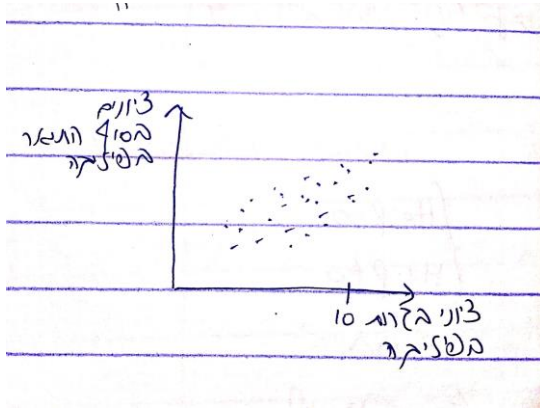 ציונים
בסוף התואר
בפיזיקה
10
ציוני בגרות
בפיזיקה